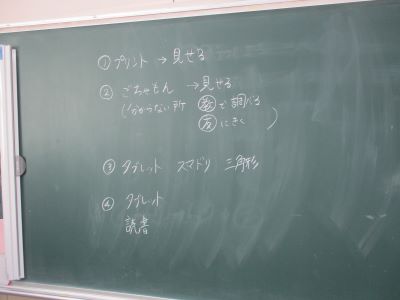 ① プリント → 見せる
② ごちゃもん → 見せる
(分からない所 教で調べる
友にきく)
③ タブレット スマドリ 三角形
④ タブレット
読書